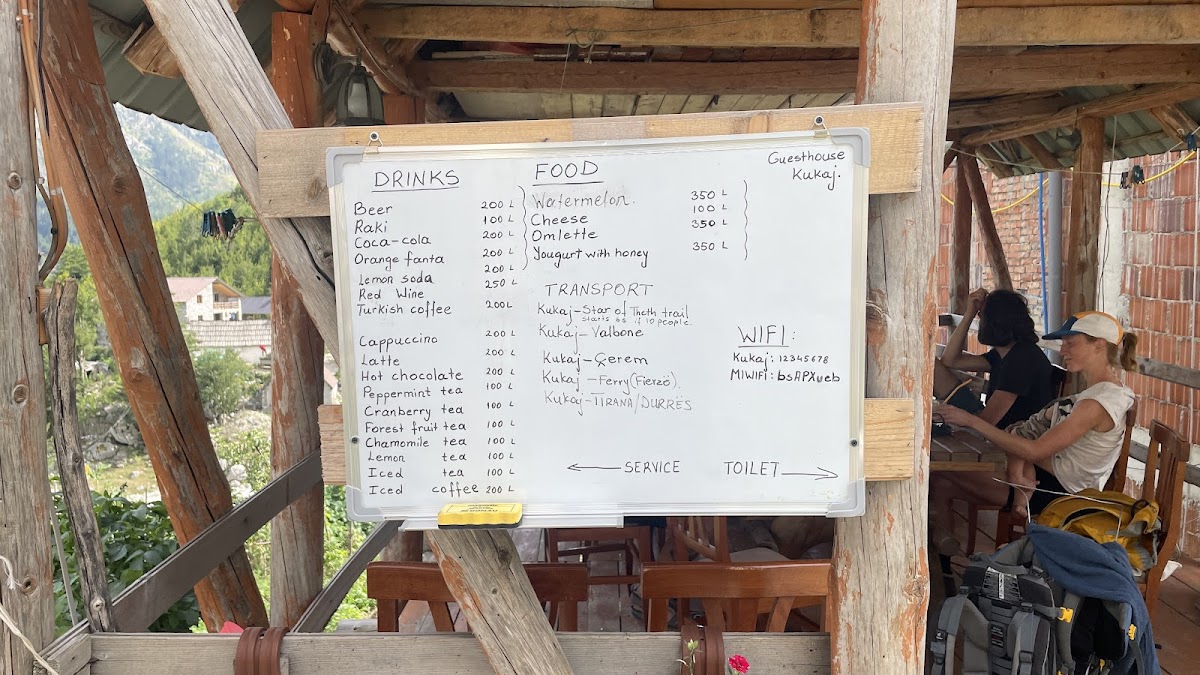 Guesthouse
Kukaj.
DRINKS
Beer 200 L
Raki 100 L
Coca-cola 200 L
Orange fanta 200 L
Lemon soda 200 L
Red Wine 250 L
Turkish coffee 200 L
Cappuccino 200 L
Latte 200 L
Hot chocolate 200 L
Peppermint tea 100 L
Cranberry tea 100 L
Forest fruit tea 100 L
Chamomile tea 100 L
Lemon tea 100 L
Iced tea 100 L
Iced coffee 200 L
FOOD
Watermelon. 350 L
Cheese 100 L
Omlette 350 L
Yougurt with honey 350 L
TRANSPORT
Kukaj-Star of Theth trail
starts as if 10 people.
Kukaj-Valbone
Kukaj-Çerem
Kukaj-Ferry(Fierzë).
Kukaj-TIRANA/DURRËS
WIFI:
Kukaj: 12345678
MIWIFI: bsAPXueb
← SERVICE
TOILET →